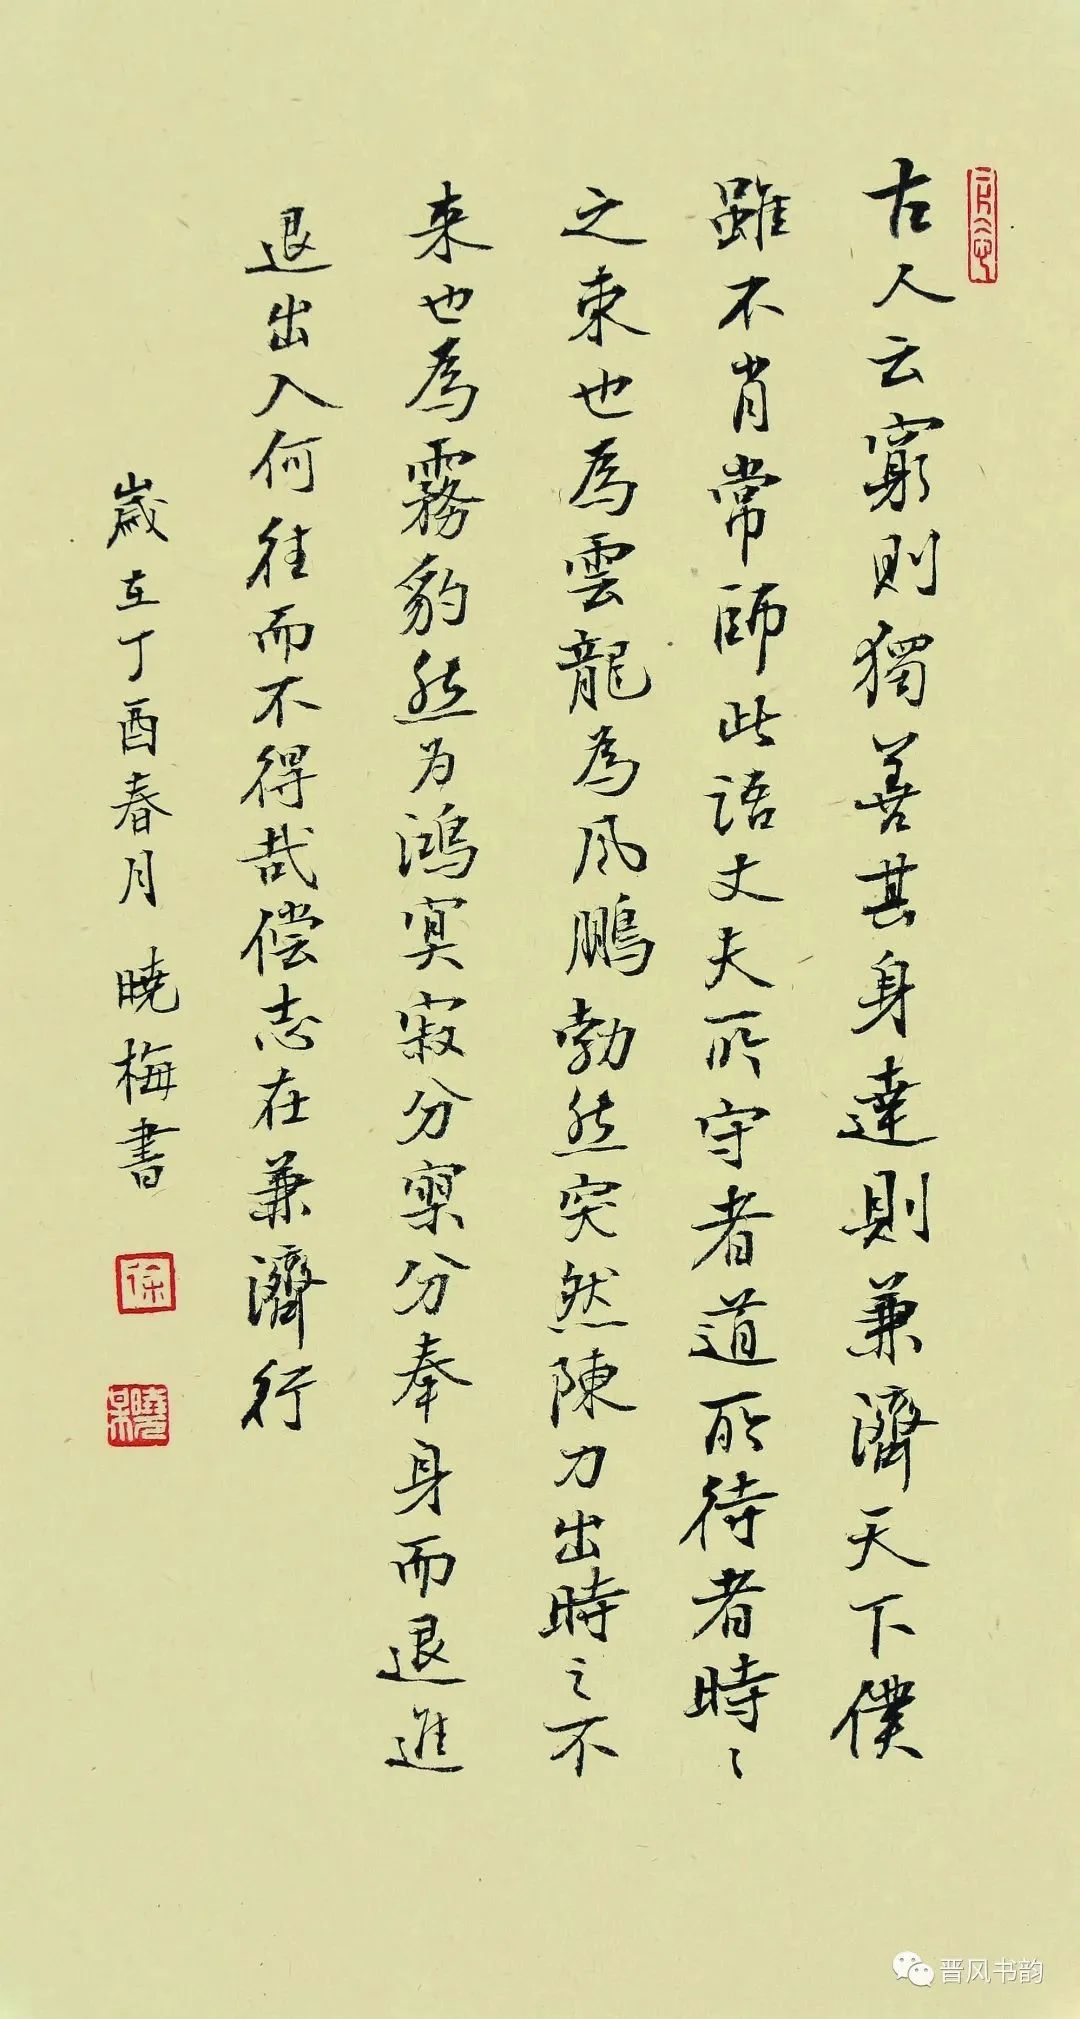 古人云窮則獨善其身達則兼濟天下僕
雖不肖常師此語丈夫所守者道所待者時〻
之来也為雲龍為风鵬勃然突然陳力出時之不
来也為霧豹然为鴻冥寂分寥分奉身而退進
退出入何往而不得哉偿志在兼濟行
歲在丁酉春月 曉梅書
徐
晋风书韵